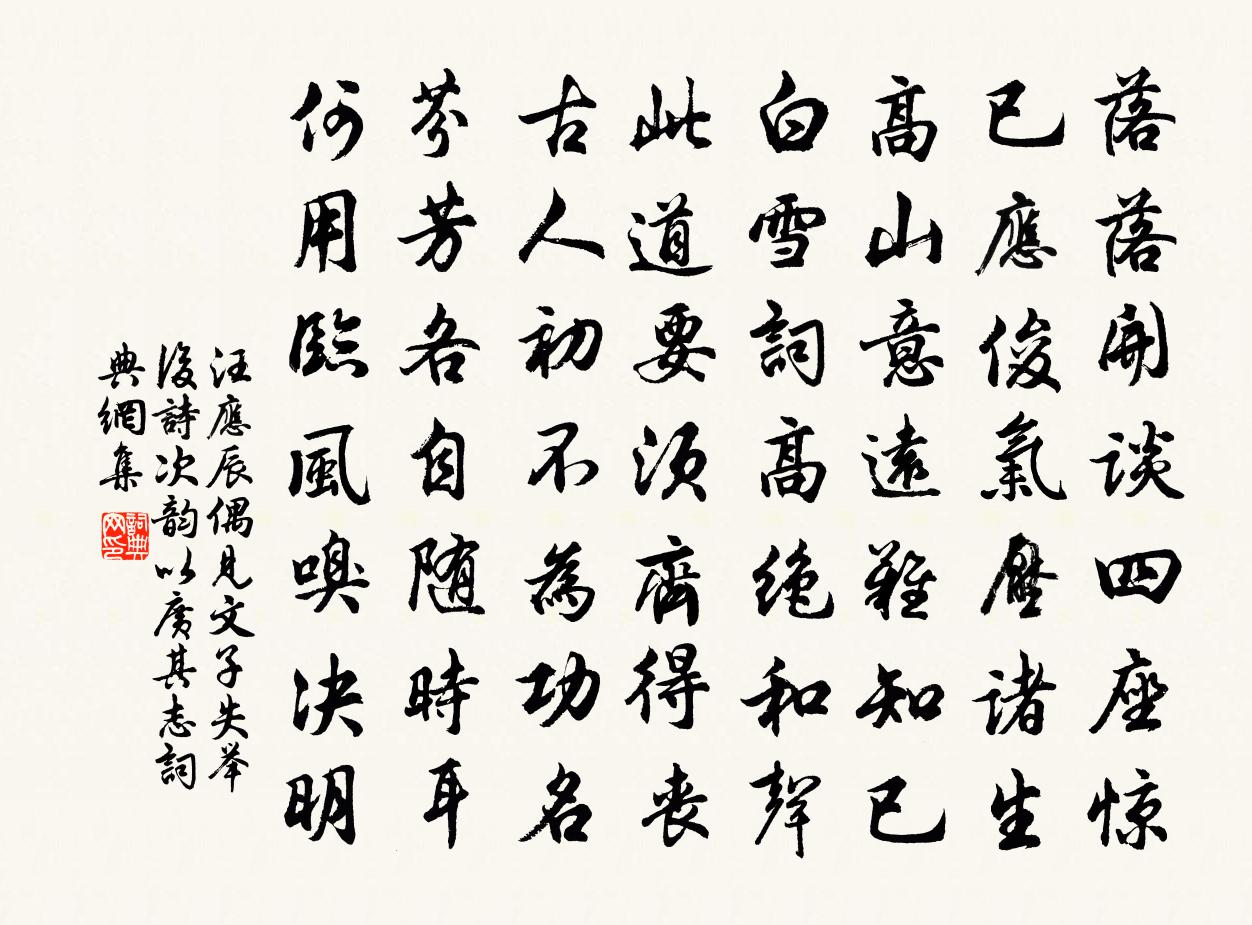 落落開談四座惊
已應俊氣壓諸生
高山意遠難知己
白雪詞高絶和聲
此道要須齊得喪
古人初不為功名
芬芳各自随時耳
何用臨風嗅決明
汪應辰偶見文子失举
後詩次韵以廣其志詞
典網集
詞典网印